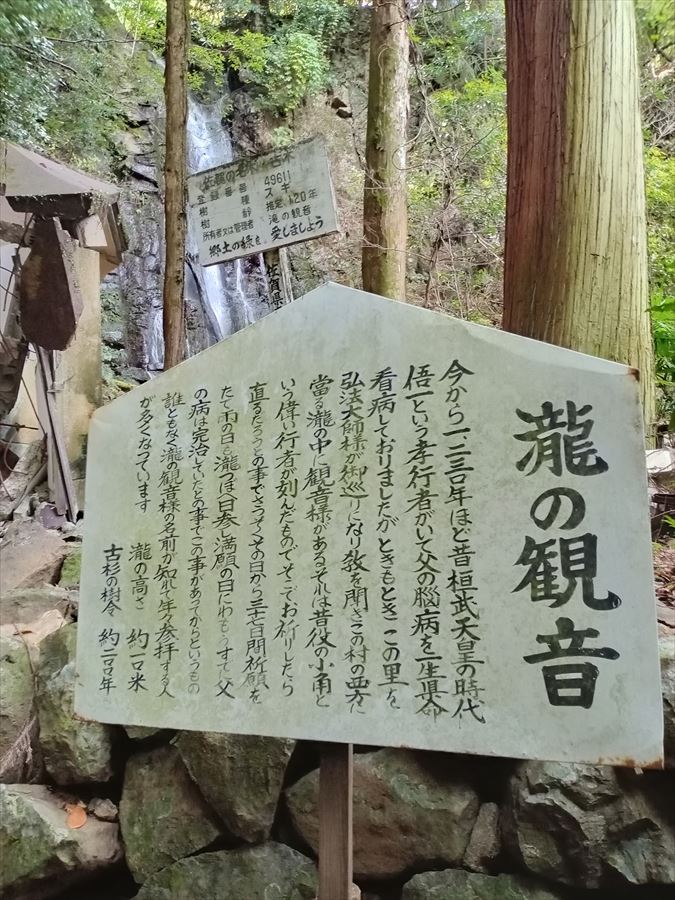 瀧の観音
今から一、二三〇年ほど昔桓武天皇の時代
悟一という孝行者がいて父の脳病を一生県命
看病しておりましたがときもときこの里を
弘法大師様が御巡りになり教を聞きこの村の西方に
當る瀧の中に観音様があるそれは昔役の小角と
いう偉い行者が刻んだものでそこでお祈りしたら
直るだろうとの事でさっそくその日から三七日間祈願を
たて雨の日も瀧つぼへ日参し満願の日にわもうすでに父
の病は完治していたとの事でこの事があってからというもの
誰ともなく瀧の観音様の名前が知れ年々参拝する人
が多くなっています
瀧の高さ 約二〇米
古杉の樹令 約二〇〇年
佐賀の名木・古木
登録番号 49611
樹種 スギ
樹齢 指定 120年
所有者又は管理者 滝の観音
郷土の緑を愛しましょう
佐賀県